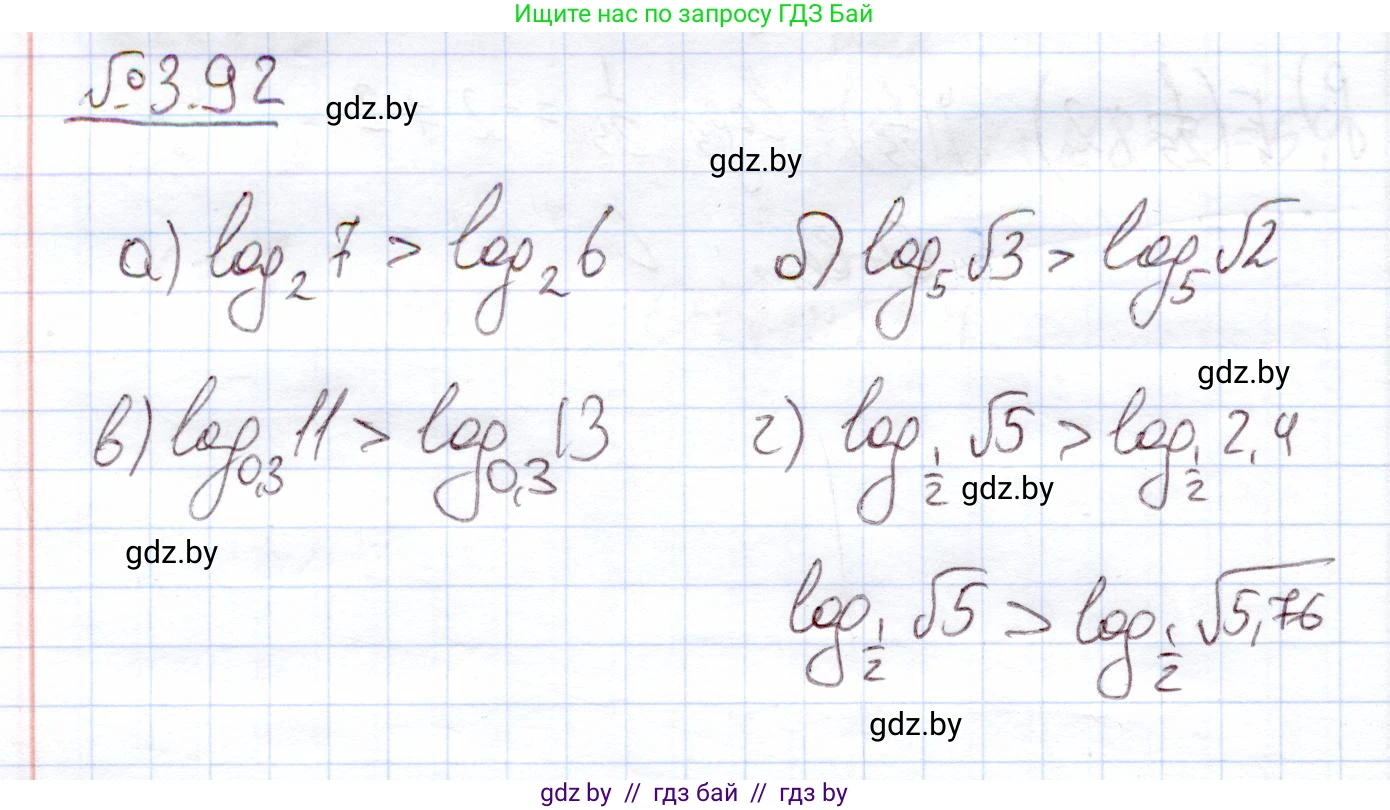 Ищите нас по запросу ГДЗ Бай
№3.92
gdz.by
gdz.by
а) log₂ 7 > log₂ 6
б) log₅ √3 > log₅ √2
gdz.by
в) log₀,₃ 11 > log₀,₃ 13
г) log_{1/2} √5 > log_{1/2} 2,4
gdz.by
gdz.by
log_{1/2} √5 > log_{1/2} √5,76
gdz.by
gdz by // гдз бай // гдз by